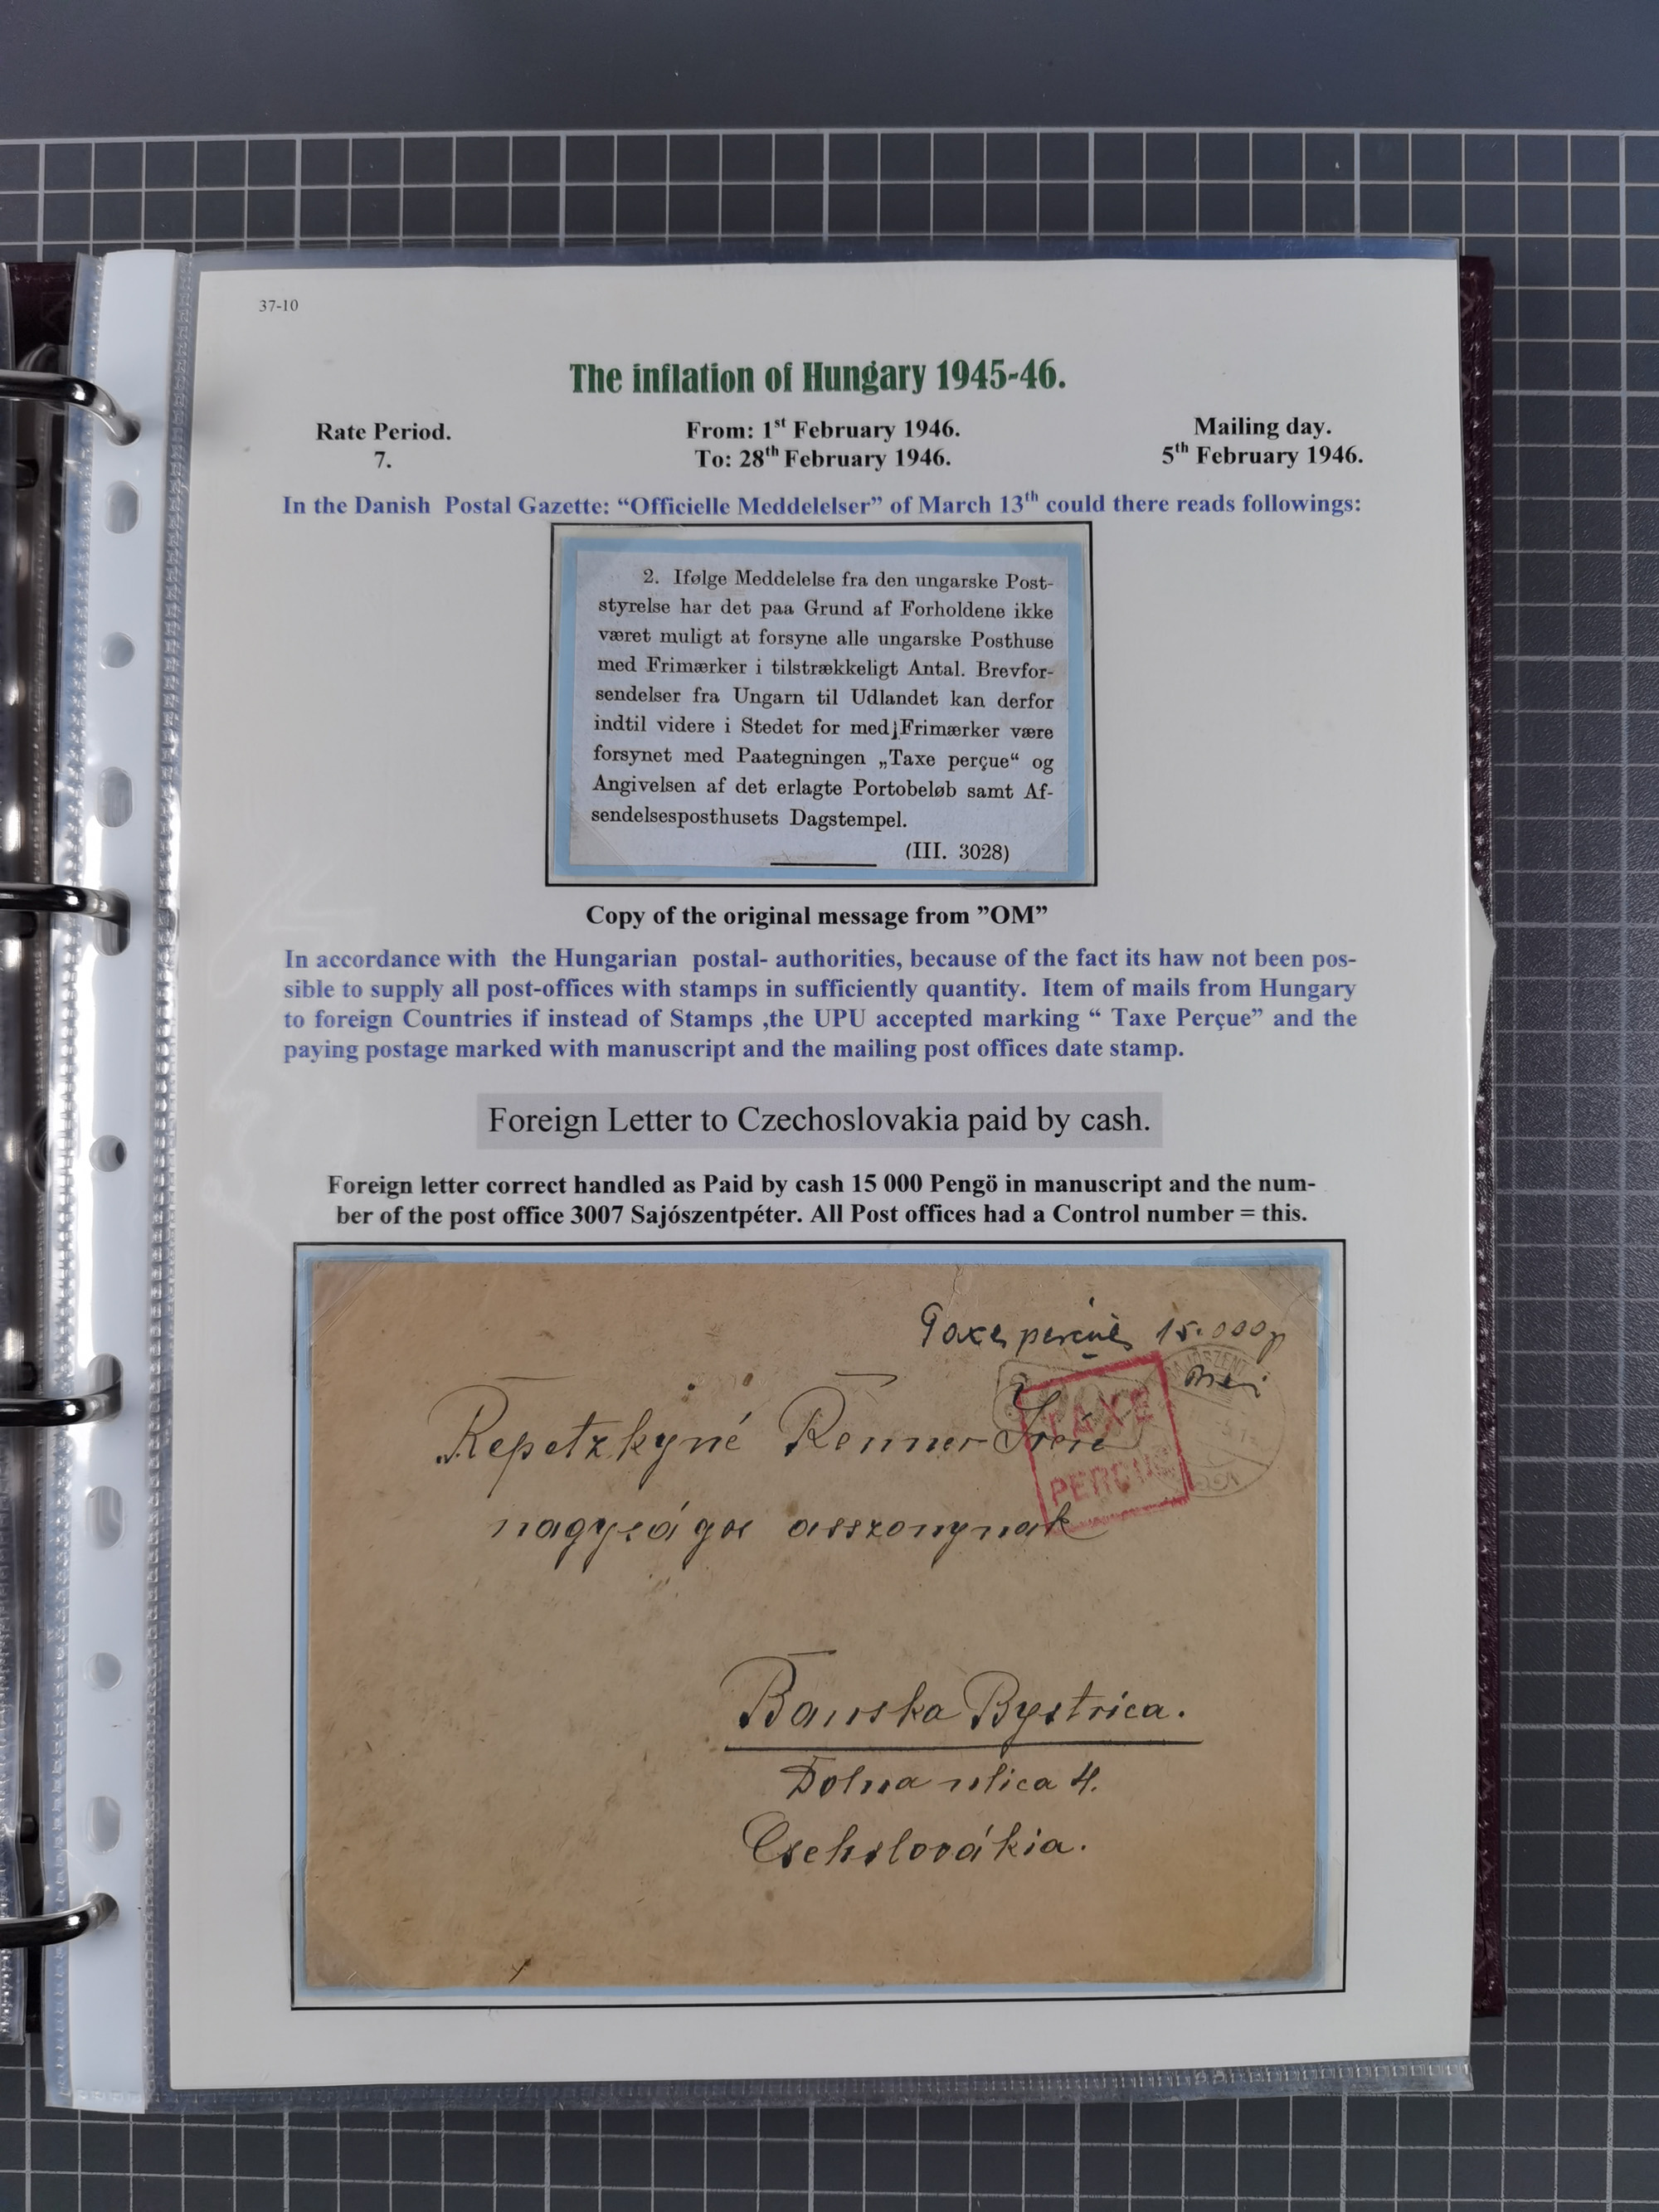 37-10
The inflation of Hungary 1945-46.
Rate Period.
7.
From: 1st February 1946.
To: 28th February 1946.
Mailing day.
5th February 1946.
In the Danish Postal Gazette: “Officielle Meddelelser” of March 13th could there reads followings:
2. Ifølge Meddelelse fra den ungarske Post-
styrelse har det paa Grund af Forholdene ikke
været muligt at forsyne alle ungarske Posthuse
med Frimærker i tilstrækkeligt Antal. Brevfor-
sendelser fra Ungarn til Udlandet kan derfor
indtil videre i Stedet for med Frimærker være
forsynet med Paategningen „Taxe perçue“ og
Angivelsen af det erlagte Portobeløb samt Af-
sendelsesposthusets Dagstempel.
(III. 3028)
Copy of the original message from ”OM”
In accordance with the Hungarian postal- authorities, because of the fact its haw not been pos-
sible to supply all post-offices with stamps in sufficiently quantity. Item of mails from Hungary
to foreign Countries if instead of Stamps ,the UPU accepted marking “ Taxe Perçue” and the
paying postage marked with manuscript and the mailing post offices date stamp.
Foreign Letter to Czechoslovakia paid by cash.
Foreign letter correct handled as Paid by cash 15 000 Pengö in manuscript and the num-
ber of the post office 3007 Sajószentpéter. All Post offices had a Control number = this.
Taxe 15.000 p
SAJÓSZENT
TAXE
PERÇUE
Repetzkyné Renner Irén
nagyságos asszonynak
Banska Bystrica.
Dolna ulica 4.
Csehslovákia.